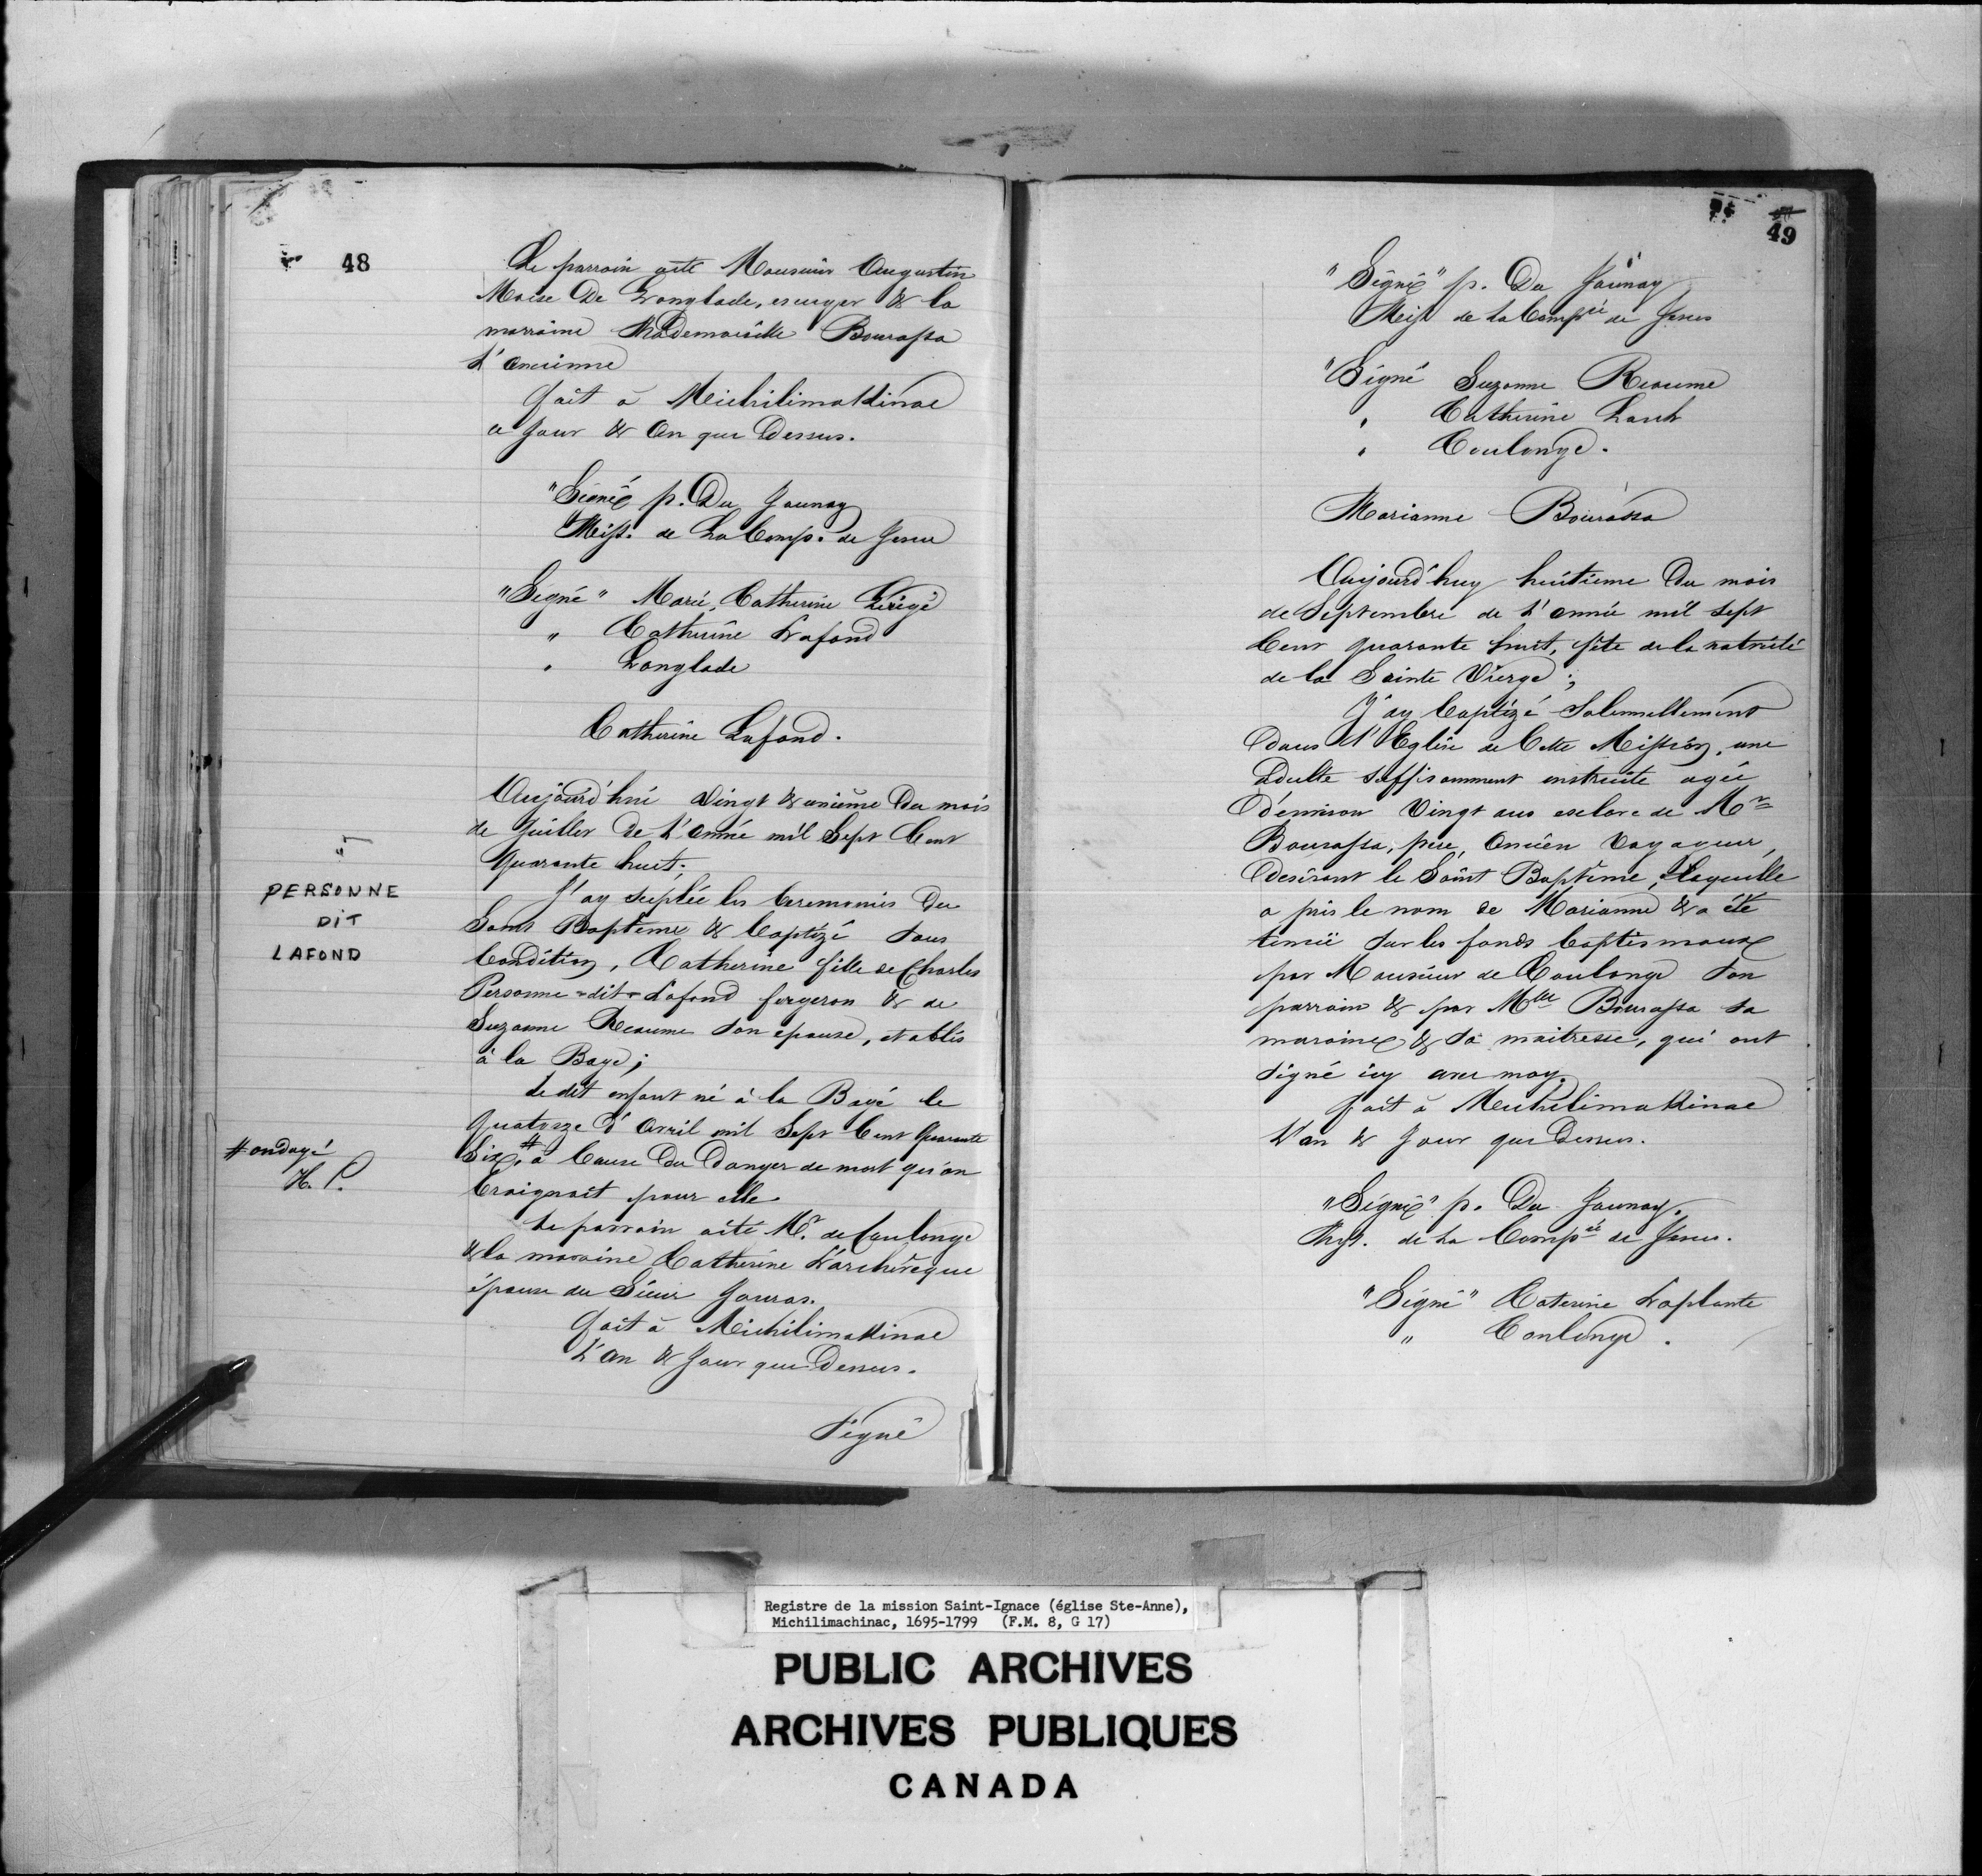 48
Le parrain aété Monsieur Augustin
Moise De Langlade, escuyer & la
marraine Mademoiselle Bourassa
L'ancienne
fait à Michilimakinac
a Jour & An que Dessus.
"Signé p. Du Jaunay
Miss. de La Comp. de Jesus
"Signé" Marie, Catherine Lerige
" Catherine Lafond
" Langlade
Catherine Lafond.
Aujourd'hui Vingt & unieme Du mois
de Juillet De L'année mil Sept Cent
Quarante huit;
J'ay supléé les Ceremonies Du
PERSONNE
DIT
LAFOND
Saint Baptême & Baptizé Sous
Condition, Catherine fille de Charles
Personne-dit-Lafond forgeron & de
Suzanne Reaume son epouse, etablis
à la Baye;
Le dit enfant né à la Baye le
Quatorze d'Avril mil Sept Cent Quarante
#ondoyé
H. P.
Six,# à Cause Du Danger de mort qu'on
Craignoit pour elle.
Le parrain aété Mr. de Coulonge
& la maraine Catherine L'archevêque
épouse du Sieur Jouras.
fait à Michilimakinac
L'an & Jour que Dessus.
Signé
49
"Signé" p. Du Jaunay
Miss de La Compie de Jesus
"Signé Suzanne Reaume
" Catherine Larch
" Coulonge.
Marianne Bourassa
Aujourd'huy huitieme Du mois
de Septembre de L'année mil sept
Cent quarante huit, fête de la nativité
de la Sainte Vierge;
J'ay baptizé Solennellement
Dans L'Eglise de Cette Mission, une
adulte suffisamment instruite agée
D'environ Vingt ans esclave de Mr
Bourassa, père, Ancien Voyageur,
Desirant le Saint Baptême, Laquelle
a pris le nom de Marianne & a été
tenuë Sur les fonds baptismaux
par Monsieur de Coulonge Son
parrain & par Mlle Bourassa sa
maraine & Sa maitresse, qui ont
Signé icy avec moy.
fait à Michilimakinac
L'an & Jour que Dessus.
"Signé" p. Du Jaunay.
Miss. de La Compie de Jesus.
"Signé" Caterine Laplante
" Conlonge.
Registre de la mission Saint-Ignace (église Ste-Anne),
Michilimachinac, 1695-1799 (F.M. 8, G 17)
PUBLIC ARCHIVES
ARCHIVES PUBLIQUES
CANADA